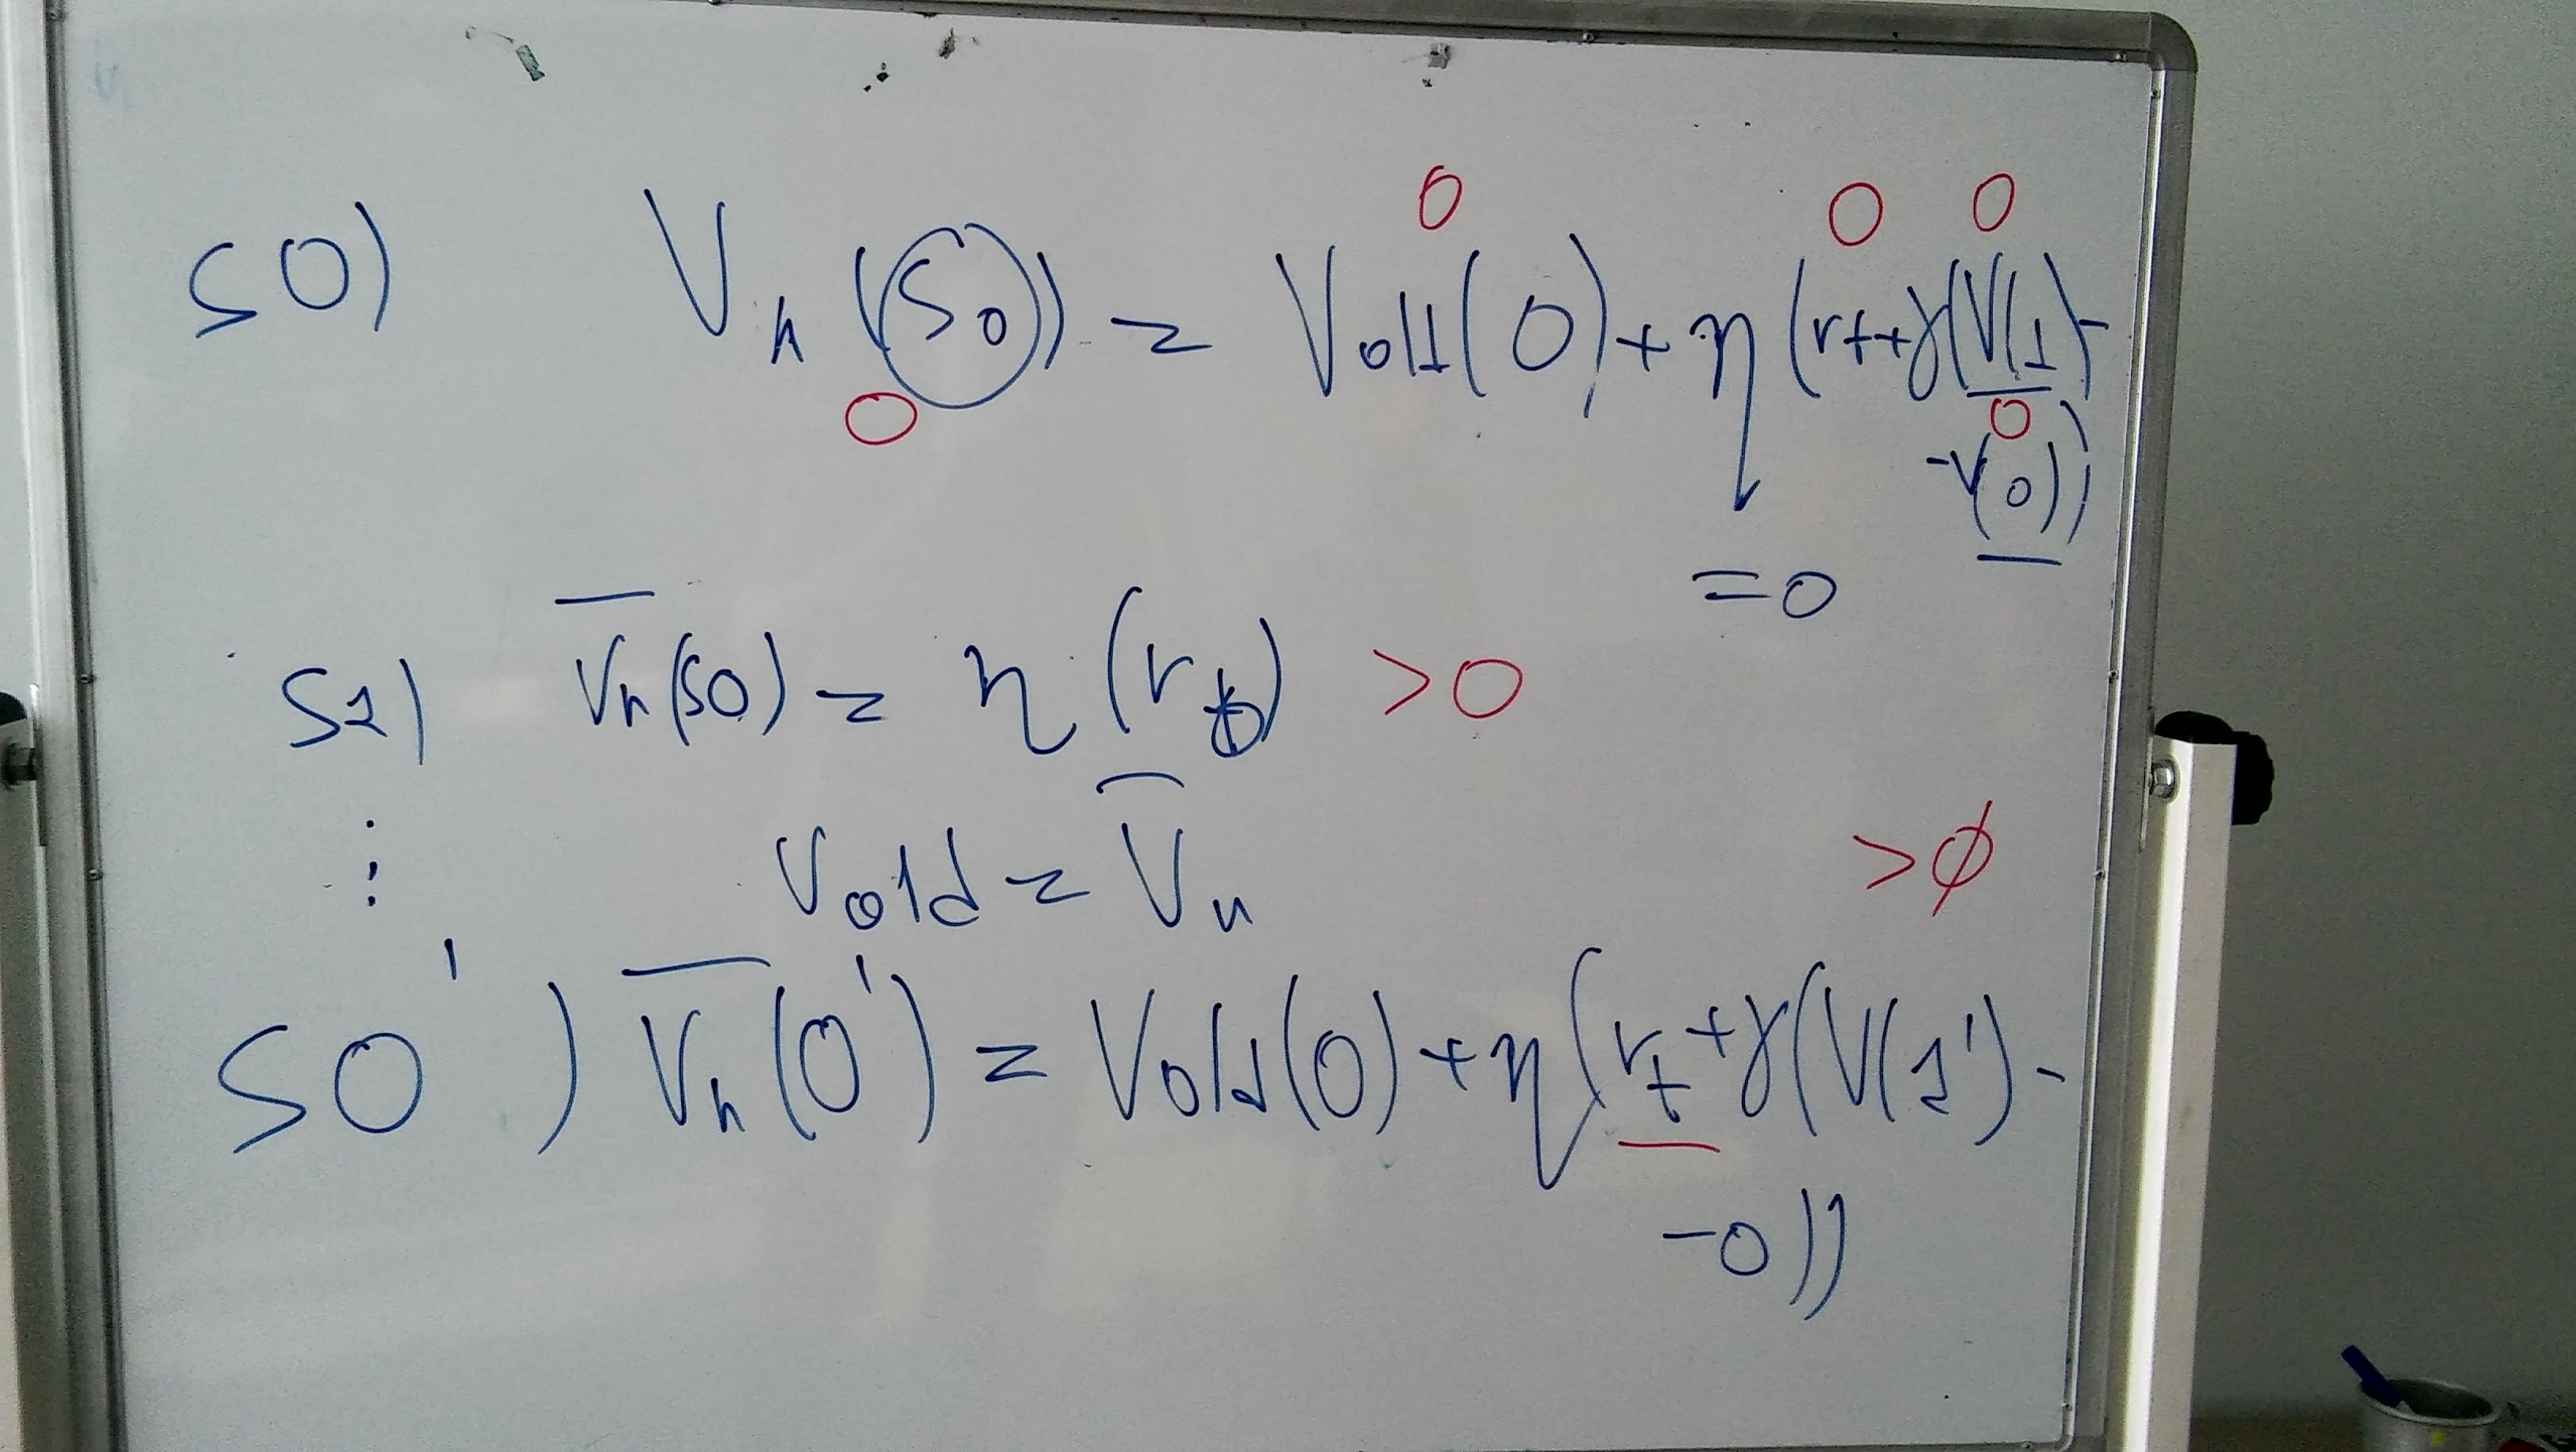 0 0 0
S0) Vn(S0) = Vold(0) + η(rt + γ(V(1) -
0 0
-V(0)))
= 0
S1) Vn(S0) = η(rt0) > 0
⋮ Vold = Vn > ∅
S0') Vn(0') = Vold(0) + η(rt + γ(V(1') -
-0))